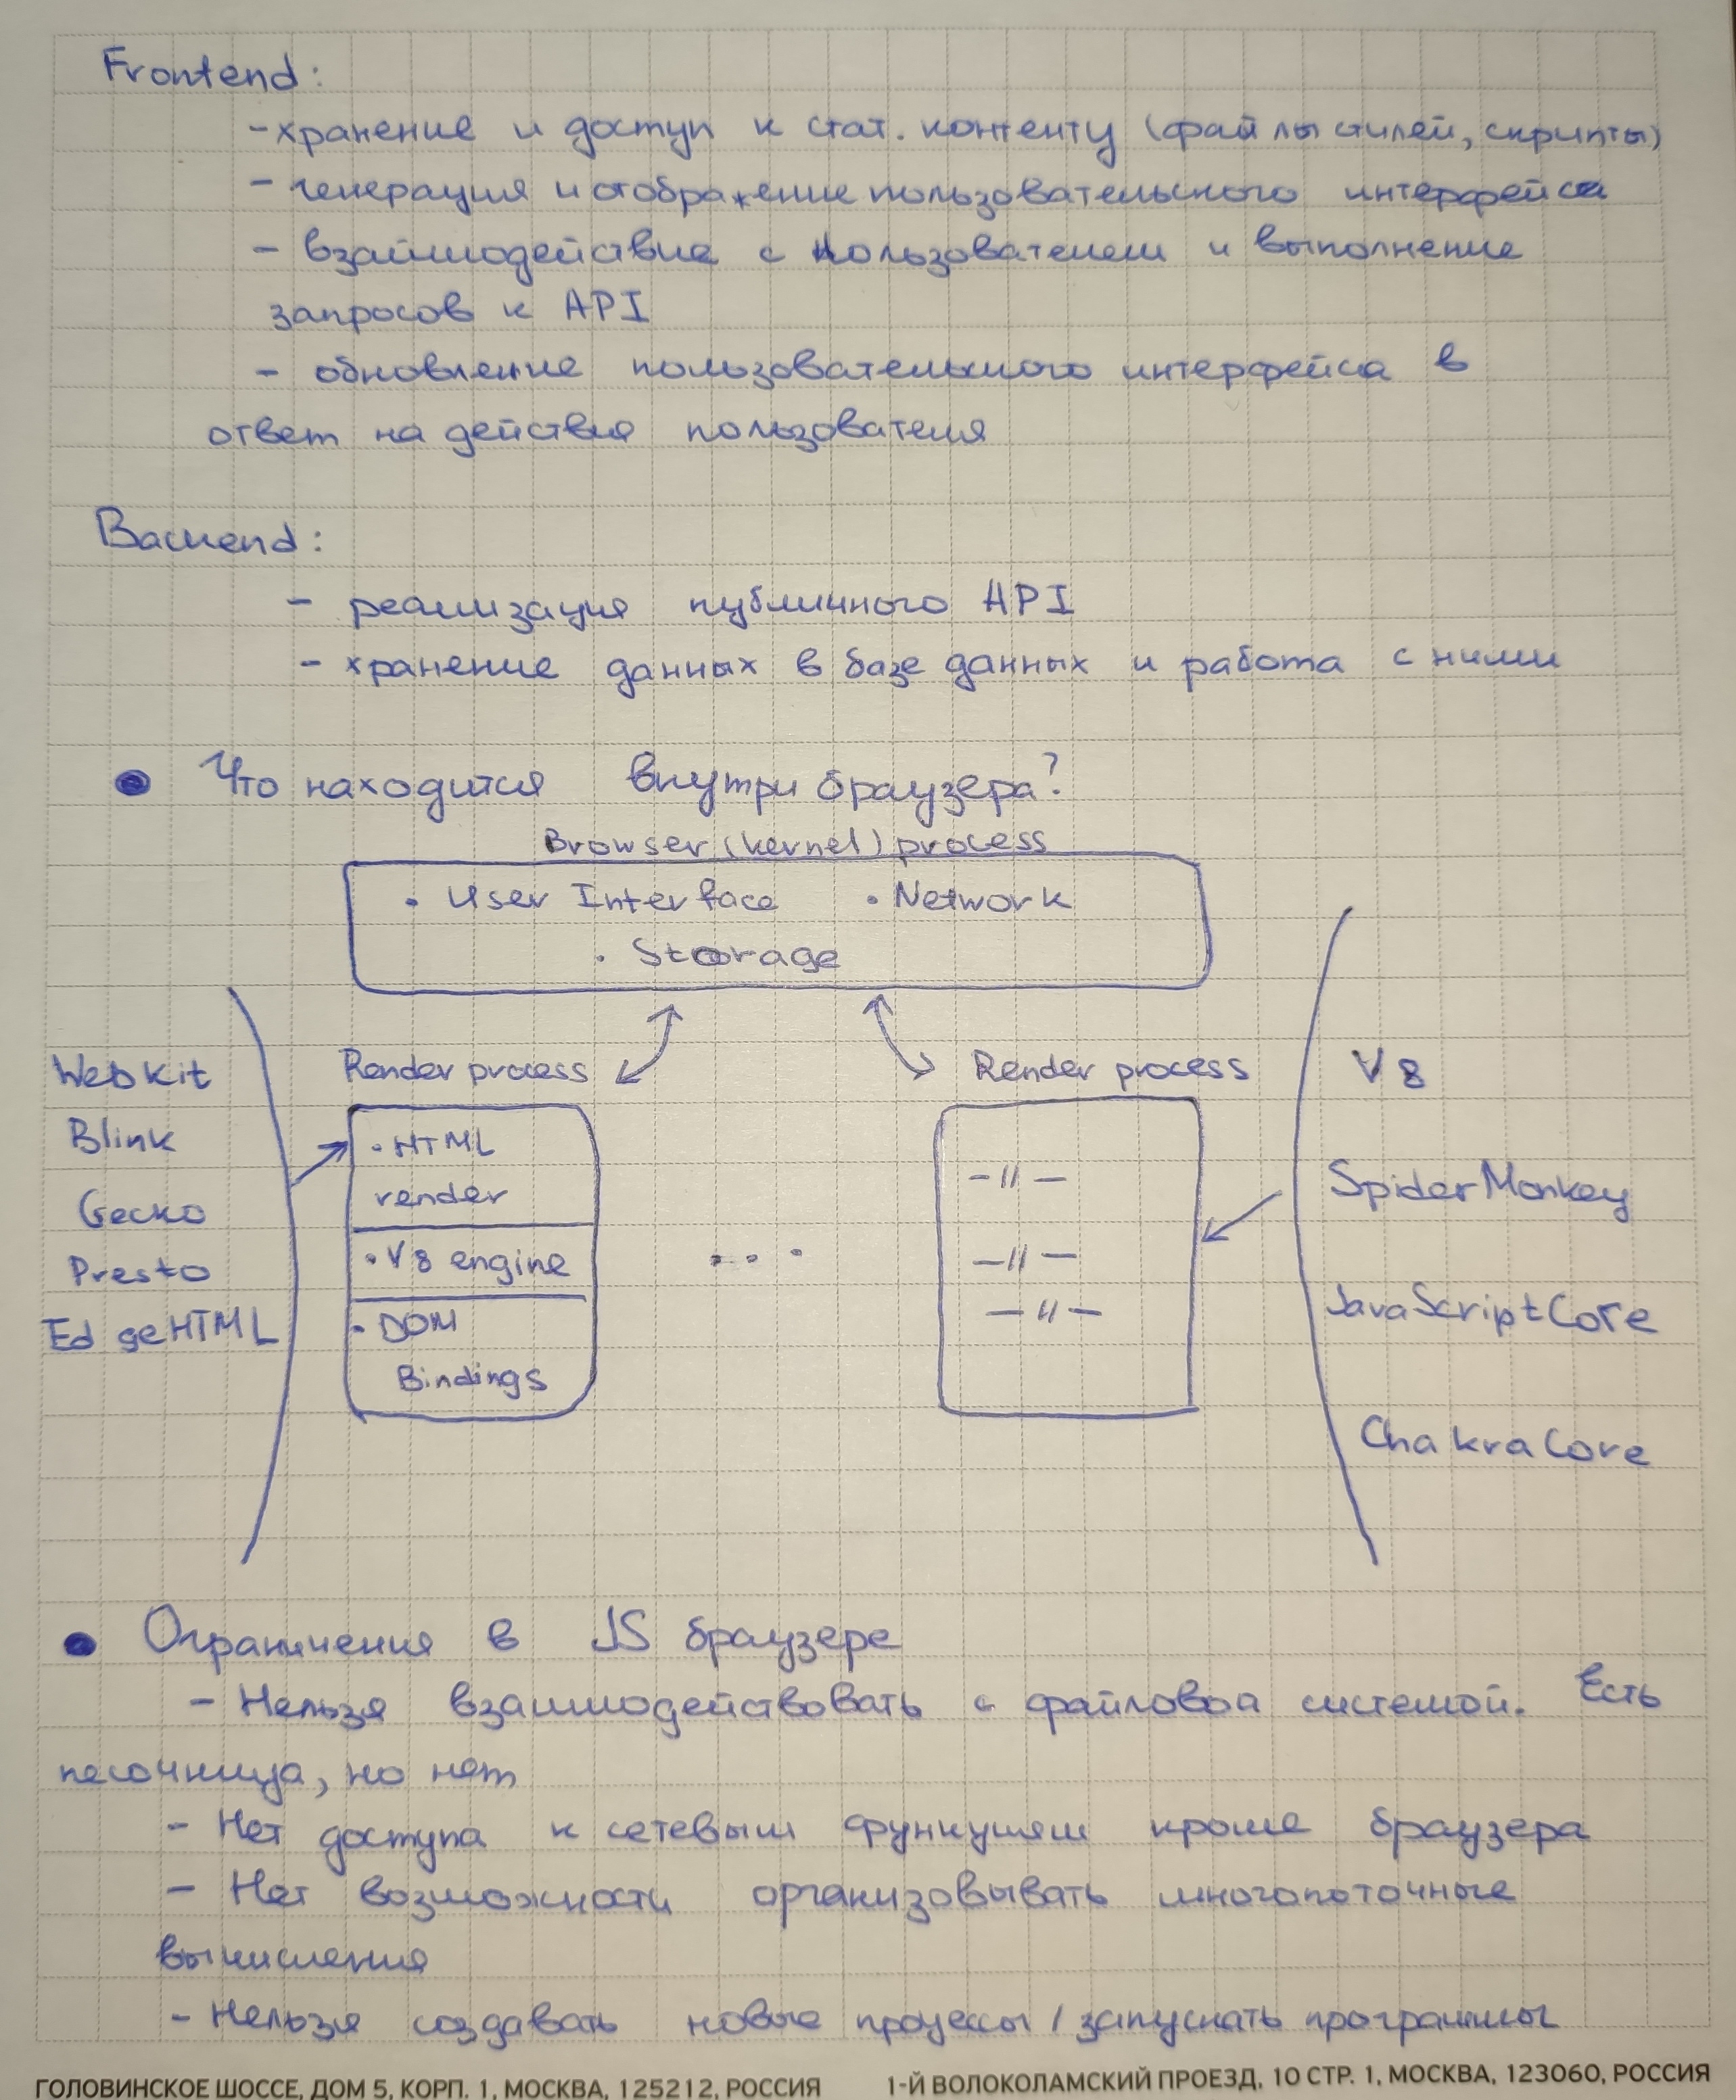 Frontend:
-хранение и доступ к стат. контенту (файлы стилей, скрипты)
- генерация и отображение пользовательского интерфейса
- взаимодействие с пользователем и выполнение
запросов к API
- обновление пользовательского интерфейса в
ответ на действия пользователя
Backend:
- реализация публичного API
- хранение данных в базе данных и работа с ними
• Что находится внутри браузера?
Browser (kernel) process
• User Interface • Network
• Storage
Render process
Render process
WebKit
Blink
Gecko
Presto
EdgeHTML
• HTML
render
• V8 engine
• DOM
Bindings
...
-//-
-//-
-//-
V8
SpiderMonkey
JavaScriptCore
ChakraCore
• Ограничения в JS браузере
- Нельзя взаимодействовать с файловой системой. Есть
песочница, но нет
- Нет доступа к сетевым функциям кроме браузера
- Нет возможности организовывать многопоточные
вычисления
- Нельзя создавать новые процессы / запускать программы
ГОЛОВИНСКОЕ ШОССЕ, ДОМ 5, КОРП. 1, МОСКВА, 125212, РОССИЯ
1-Й ВОЛОКОЛАМСКИЙ ПРОЕЗД, 10 СТР. 1, МОСКВА, 123060, РОССИЯ